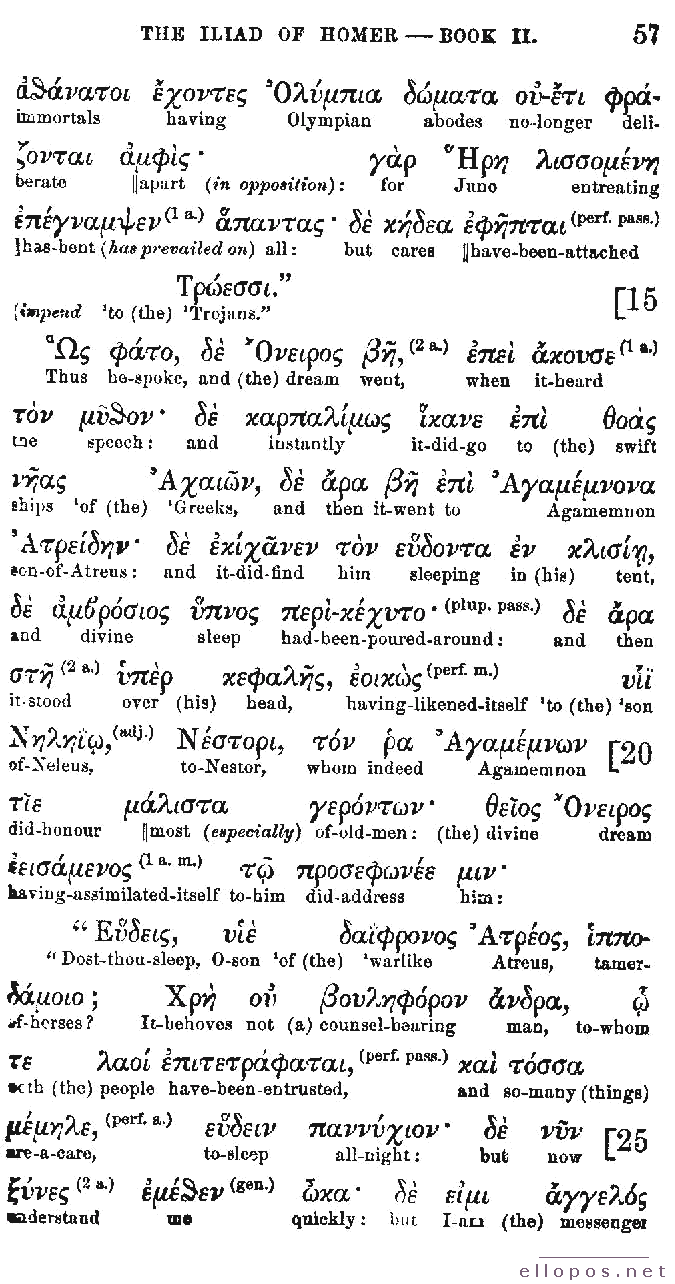 THE ILIAD OF HOMER — BOOK II. 57
ἀϑάνατοι ἔχοντες Ὀλύμπια δώματα οὐ-έτι φρά-
immortals having Olympian abodes no-longer deli-
ζονται ἀμφὶς· γὰρ Ἥρη λισσομένη
berate ||apart (in opposition): for Juno entreating
ἐπέγναμψεν (1 a.) ἅπαντας· δὲ κήδεα ἐφῆπται (perf. pass.)
||has-bent (has prevailed on) all: but cares ||have-been-attached
Τρώεσσι.” [15
(impend ¹to (the) ¹Trojans.”
Ὣς φάτο, δὲ Ὄνειρος βῆ, (2 a.) ἐπεὶ ἄκουσε (1 a.)
Thus he-spoke, and (the) dream went, when it-heard
τὸν μῦϑον· δὲ καρπαλίμως ἵκανε ἐπὶ ϑοὰς
the speech: and instantly it-did-go to (the) swift
νῆας Ἀχαιῶν, δὲ ἄρα βῆ ἐπὶ Ἀγαμέμνονα
ships ¹of (the) ¹Greeks, and then it-went to Agamemnon
Ἀτρείδην· δὲ ἐκίχᾱνεν τὸν εὕδοντα ἐν κλισίῃ,
son-of-Atreus: and it-did-find him sleeping in (his) tent,
δὲ ἀμβρόσιος ὕπνος περὶ-κέχυτο· (plup. pass.) δὲ ἄρα
and divine sleep had-been-poured-around: and then
στῆ (2 a.) ὑπὲρ κεφαλῆς, ἐοικὼς (perf. m.) υἷϊ
it-stood over (his) head, having-likened-itself ¹to (the) ¹son
Νηληΐῳ, (adj.) Νέστορι, τόν ῥα Ἀγαμέμνων [20
of-Neleus, to-Nestor, whom indeed Agamemnon
τῖε μάλιστα γερόντων· ϑεῖος Ὄνειρος
did-honour ||most (especially) of-old-men: (the) divine dream
ἐεισάμενος (1 a. m.) τῷ προσεφωνέε μιν·
having-assimilated-itself to-him did-address him:
“ Εὕδεις, υἱὲ δαΐφρονος Ἀτρέος, ἱππο-
“ Dost-thou-sleep, O-son ¹of (the) ¹warlike Atreus, tamer-
δάμοιο; Χρὴ οὐ βουληφόρον ἄνδρα, ᾧ
of-horses? It-behoves not (a) counsel-bearing man, to-whom
τε λαοί ἐπιτετράφαται, (perf. pass.) καὶ τόσσα
both (the) people have-been-entrusted, and so-many (things)
μέμηλε, (perf. a.) εὕδειν παννύχιον· δὲ νῦν [25
are-a-care, to-sleep all-night: but now
ξύνες (2 a.) ἐμέϑεν (gen.) ὦκα· δὲ εἰμι ἄγγελός
understand me quickly: but I-am (the) messenger
ellopos.net